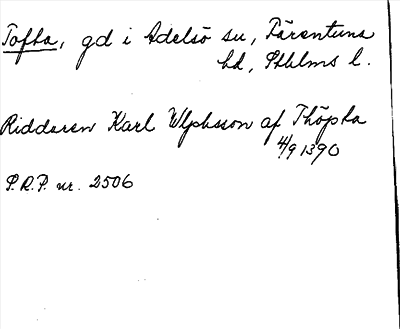 Tofta, gd i Adelsö sn, Färentuna
hd, Sthlms l.
Riddaren Karl Ulphsson af Thöpta
4/9 1390
P.R.P. nr. 2506